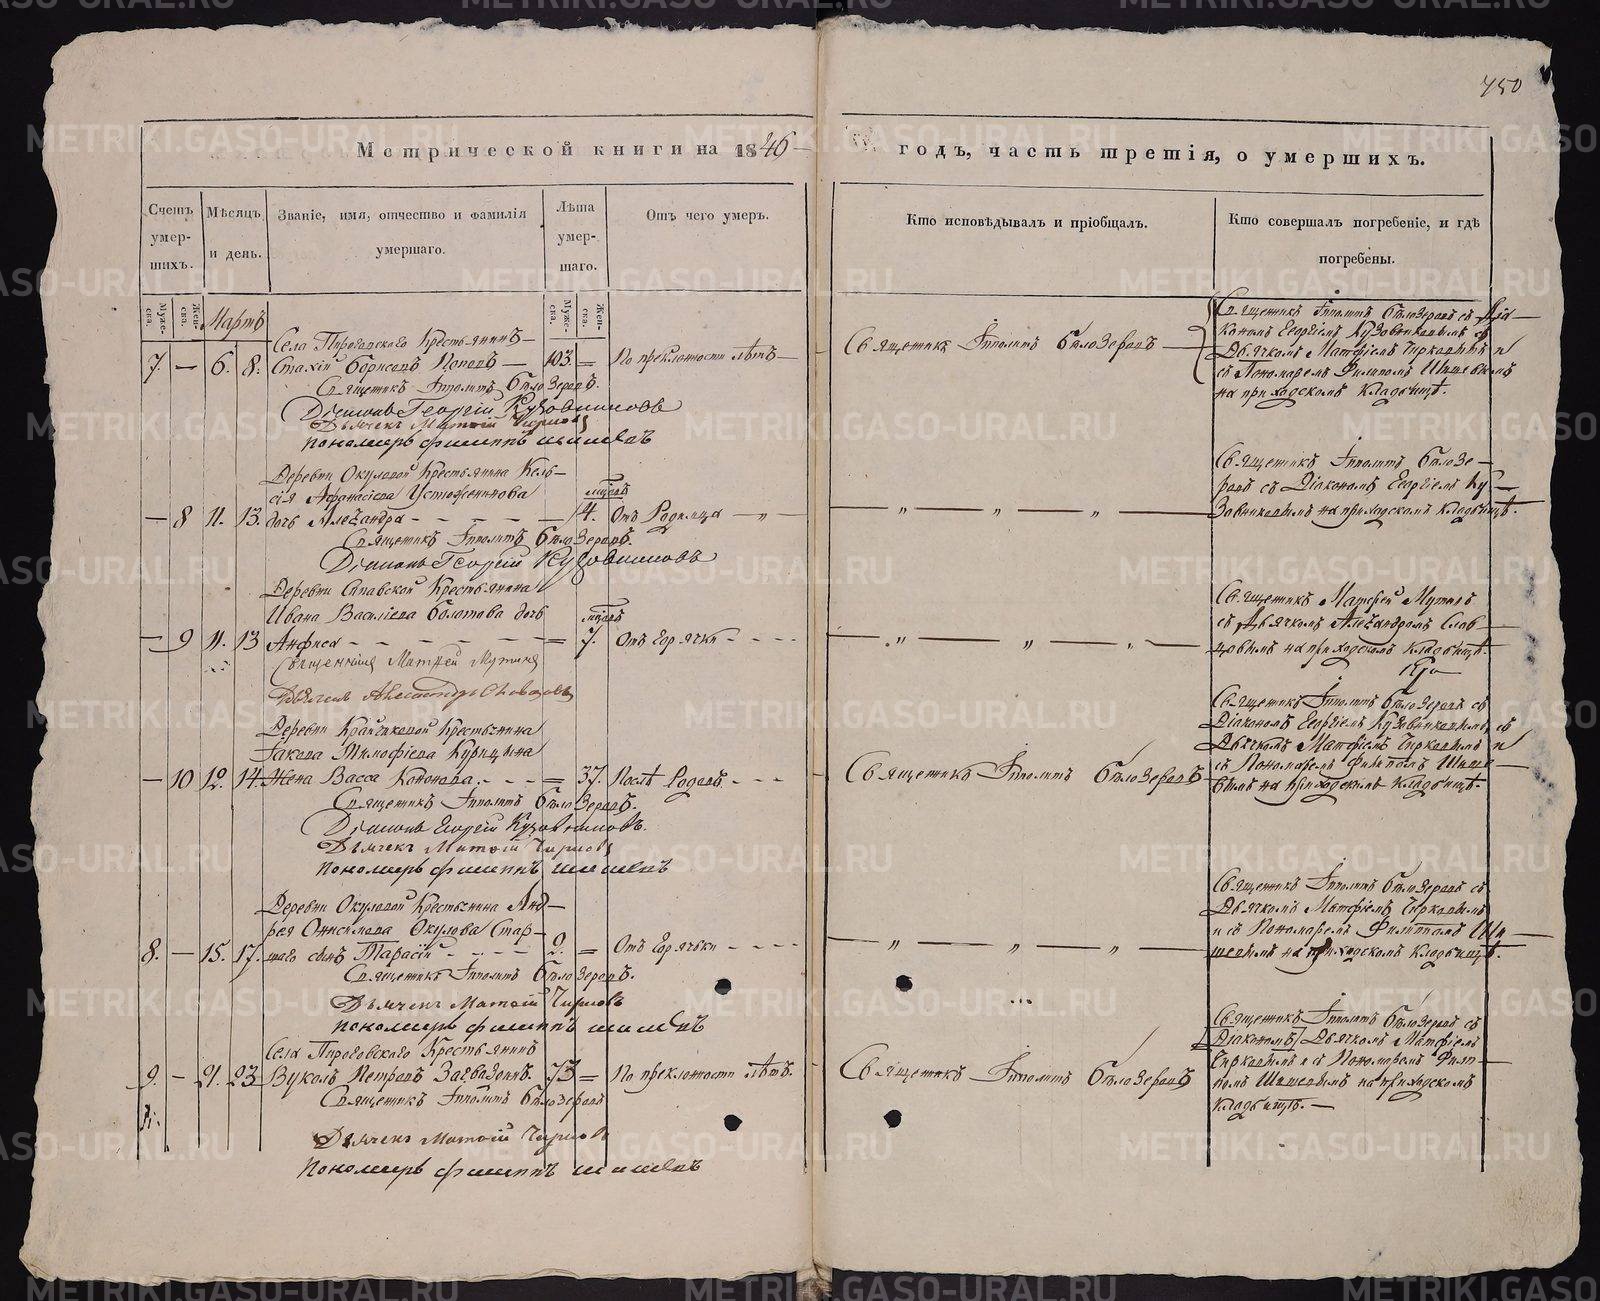 750
Метрической книги на 1846 годъ, часть третія, о умершихъ.
Счетъ умер-шихъ.
Мѣсяцъ и день.
Званіе, имя, отчество и фамилія умершаго.
Лѣта умер-шаго.
Отъ чего умеръ.
Кто исповѣдывалъ и пріобщалъ.
Кто совершалъ погребеніе, и гдѣ погребены.
Муже-ска.
Жен-ска.
Муже-ска.
Жен-ска.
Мартъ
Села Пироговскаго Крестьянинъ
7. — 6. 8. Стахій Борисовъ Поповъ — 103. = По преклонности лѣтъ —
Священникъ Ипполитъ Бѣлозеровъ.
Діаконъ Георгій Кузовниковъ
Дьячекъ Матѳій Чирковъ
пономарь Филиппъ Шишевъ
Священникъ Ипполитъ Бѣлозеровъ —
Священникъ Ипполитъ Бѣлозеровъ съ Діа-
кономъ Георгіемъ Кузовниковымъ съ
Дьячкомъ Матфіемъ Чирковымъ и
съ Пономаремъ Филипомъ Шишевымъ
на приходскомъ кладбищѣ.
Деревни Окуловой Крестьянина Кель-
сія Афанасіева Устюженинова
— 8 11. 13. дочь Александра — 4. Отъ Родимца — „ —
Священникъ Ипполитъ Бѣлозеровъ.
Діаконъ Георгій Кузовниковъ
Священникъ Ипполитъ Бѣлозе-
ровъ съ Діакономъ Георгіемъ Ку-
зовниковымъ на приходскомъ кладбищѣ.
Крестьянина
Ивана Васильева Болотова дочь
— 9 11. 13 Анфиса — = 7. Отъ Горячки
Священникъ Матфей Мутинъ
Дьячекъ Александръ Словцовъ
Священникъ Матфей Мутинъ
съ Дьячкомъ Александромъ Слов-
цовымъ на приходскомъ кладбищѣ.
Крестьянина
Іакова Тимофіева Курицына
— 10 12. 14. Жена Васса Кононова. = 37. Послѣ Родовъ.
Священникъ Ипполитъ Бѣлозеровъ.
Діаконъ Георгій Кузовниковъ.
Дьячекъ Матѳій Чирковъ
пономарь Филиппъ Шишевъ
Священникъ Ипполитъ Бѣлозеровъ
Священникъ Ипполитъ Бѣлозеровъ съ
Діакономъ Георгіемъ Кузовниковымъ, съ
Дьячкомъ Матфіемъ Чирковымъ и
съ Пономаремъ Филипомъ Шише-
вымъ на приходскомъ кладбищѣ.
Деревни Окуловой Крестьянина Анд-
рея Онисимова Окулова Стар-
8. — 15. 17. шаго сынъ Тарасій 2. = Отъ Горячки
Священникъ Ипполитъ Бѣлозеровъ.
Дьячекъ Матѳій Чирковъ
пономарь Филиппъ Шишевъ
Священникъ Ипполитъ Бѣлозеровъ съ
Дьячкомъ Матфіемъ Чирковымъ
и съ Пономаремъ Филиппомъ Ши-
шевымъ на приходскомъ кладбищѣ.
Села Пироговскаго Крестьянинъ
9. — 21. 23 Вуколъ Петровъ 73 = По преклонности лѣтъ.
Священникъ Ипполитъ Бѣлозеровъ
Дьячекъ Матѳій Чирковъ
пономарь Филиппъ Шишевъ
Священникъ Ипполитъ Бѣлозеровъ
Священникъ Ипполитъ Бѣлозеровъ съ
Діакономъ, Дьячкомъ Матфіемъ
Чирковымъ и съ Пономаремъ Фили-
помъ Шишевымъ на приходскомъ
кладбищѣ. —
METRIKI.GASO-URAL.RU